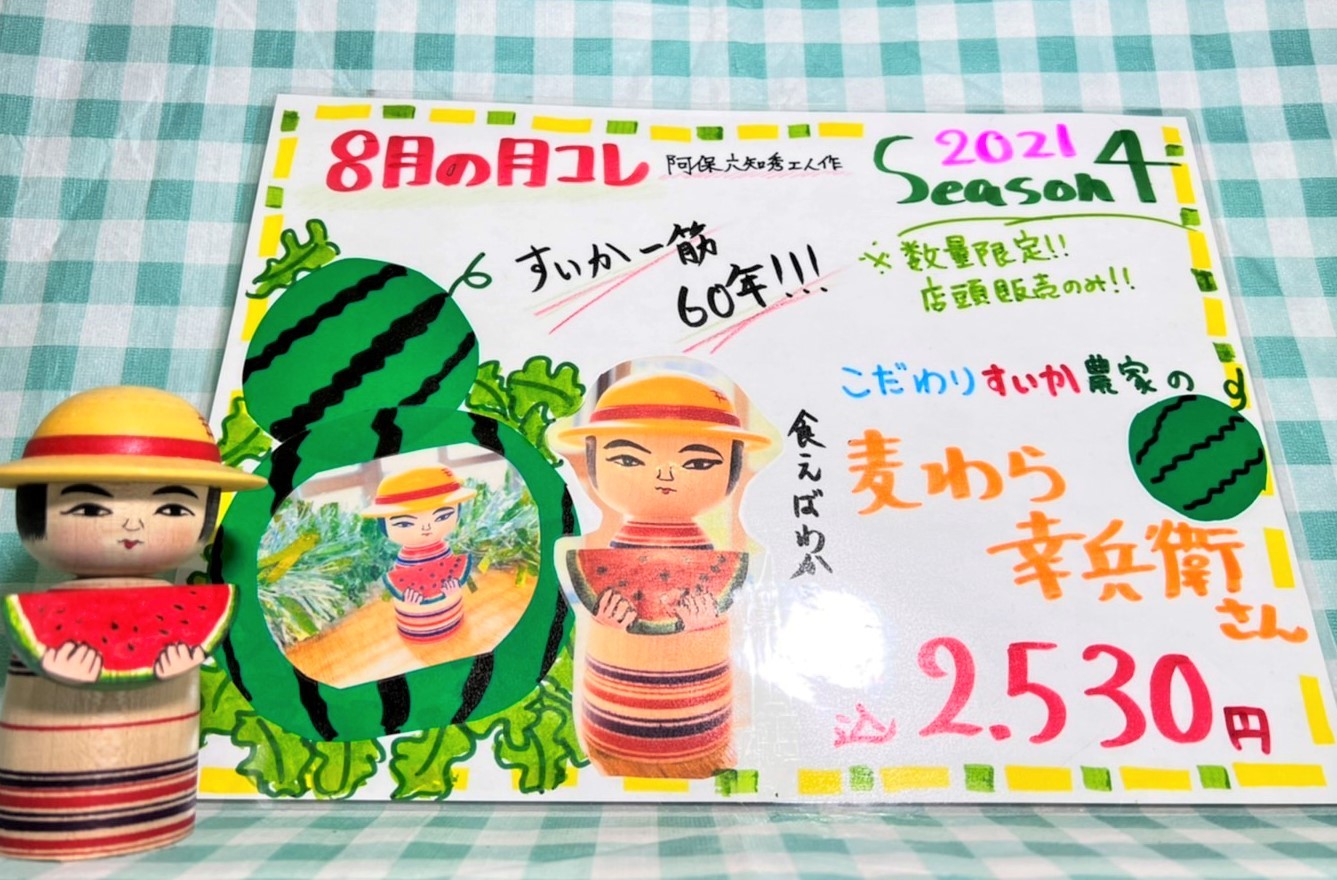 8月の月コレ
阿保六知秀工人作
2021
Season 4
すいか一筋
60年!!!
※数量限定!!
店頭販売のみ!!
こだわりすいか農家の
食えばわか
麦わら
幸兵衛
さん
込 2.530円